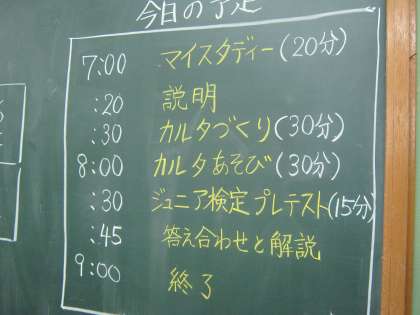 今日の予定
7:00 マイスタディー(20分)
:20 説明
:30 カルタづくり(30分)
8:00 カルタあそび(30分)
:30 ジュニア検定プレテスト(15分)
:45 答え合わせと解説
9:00 終了